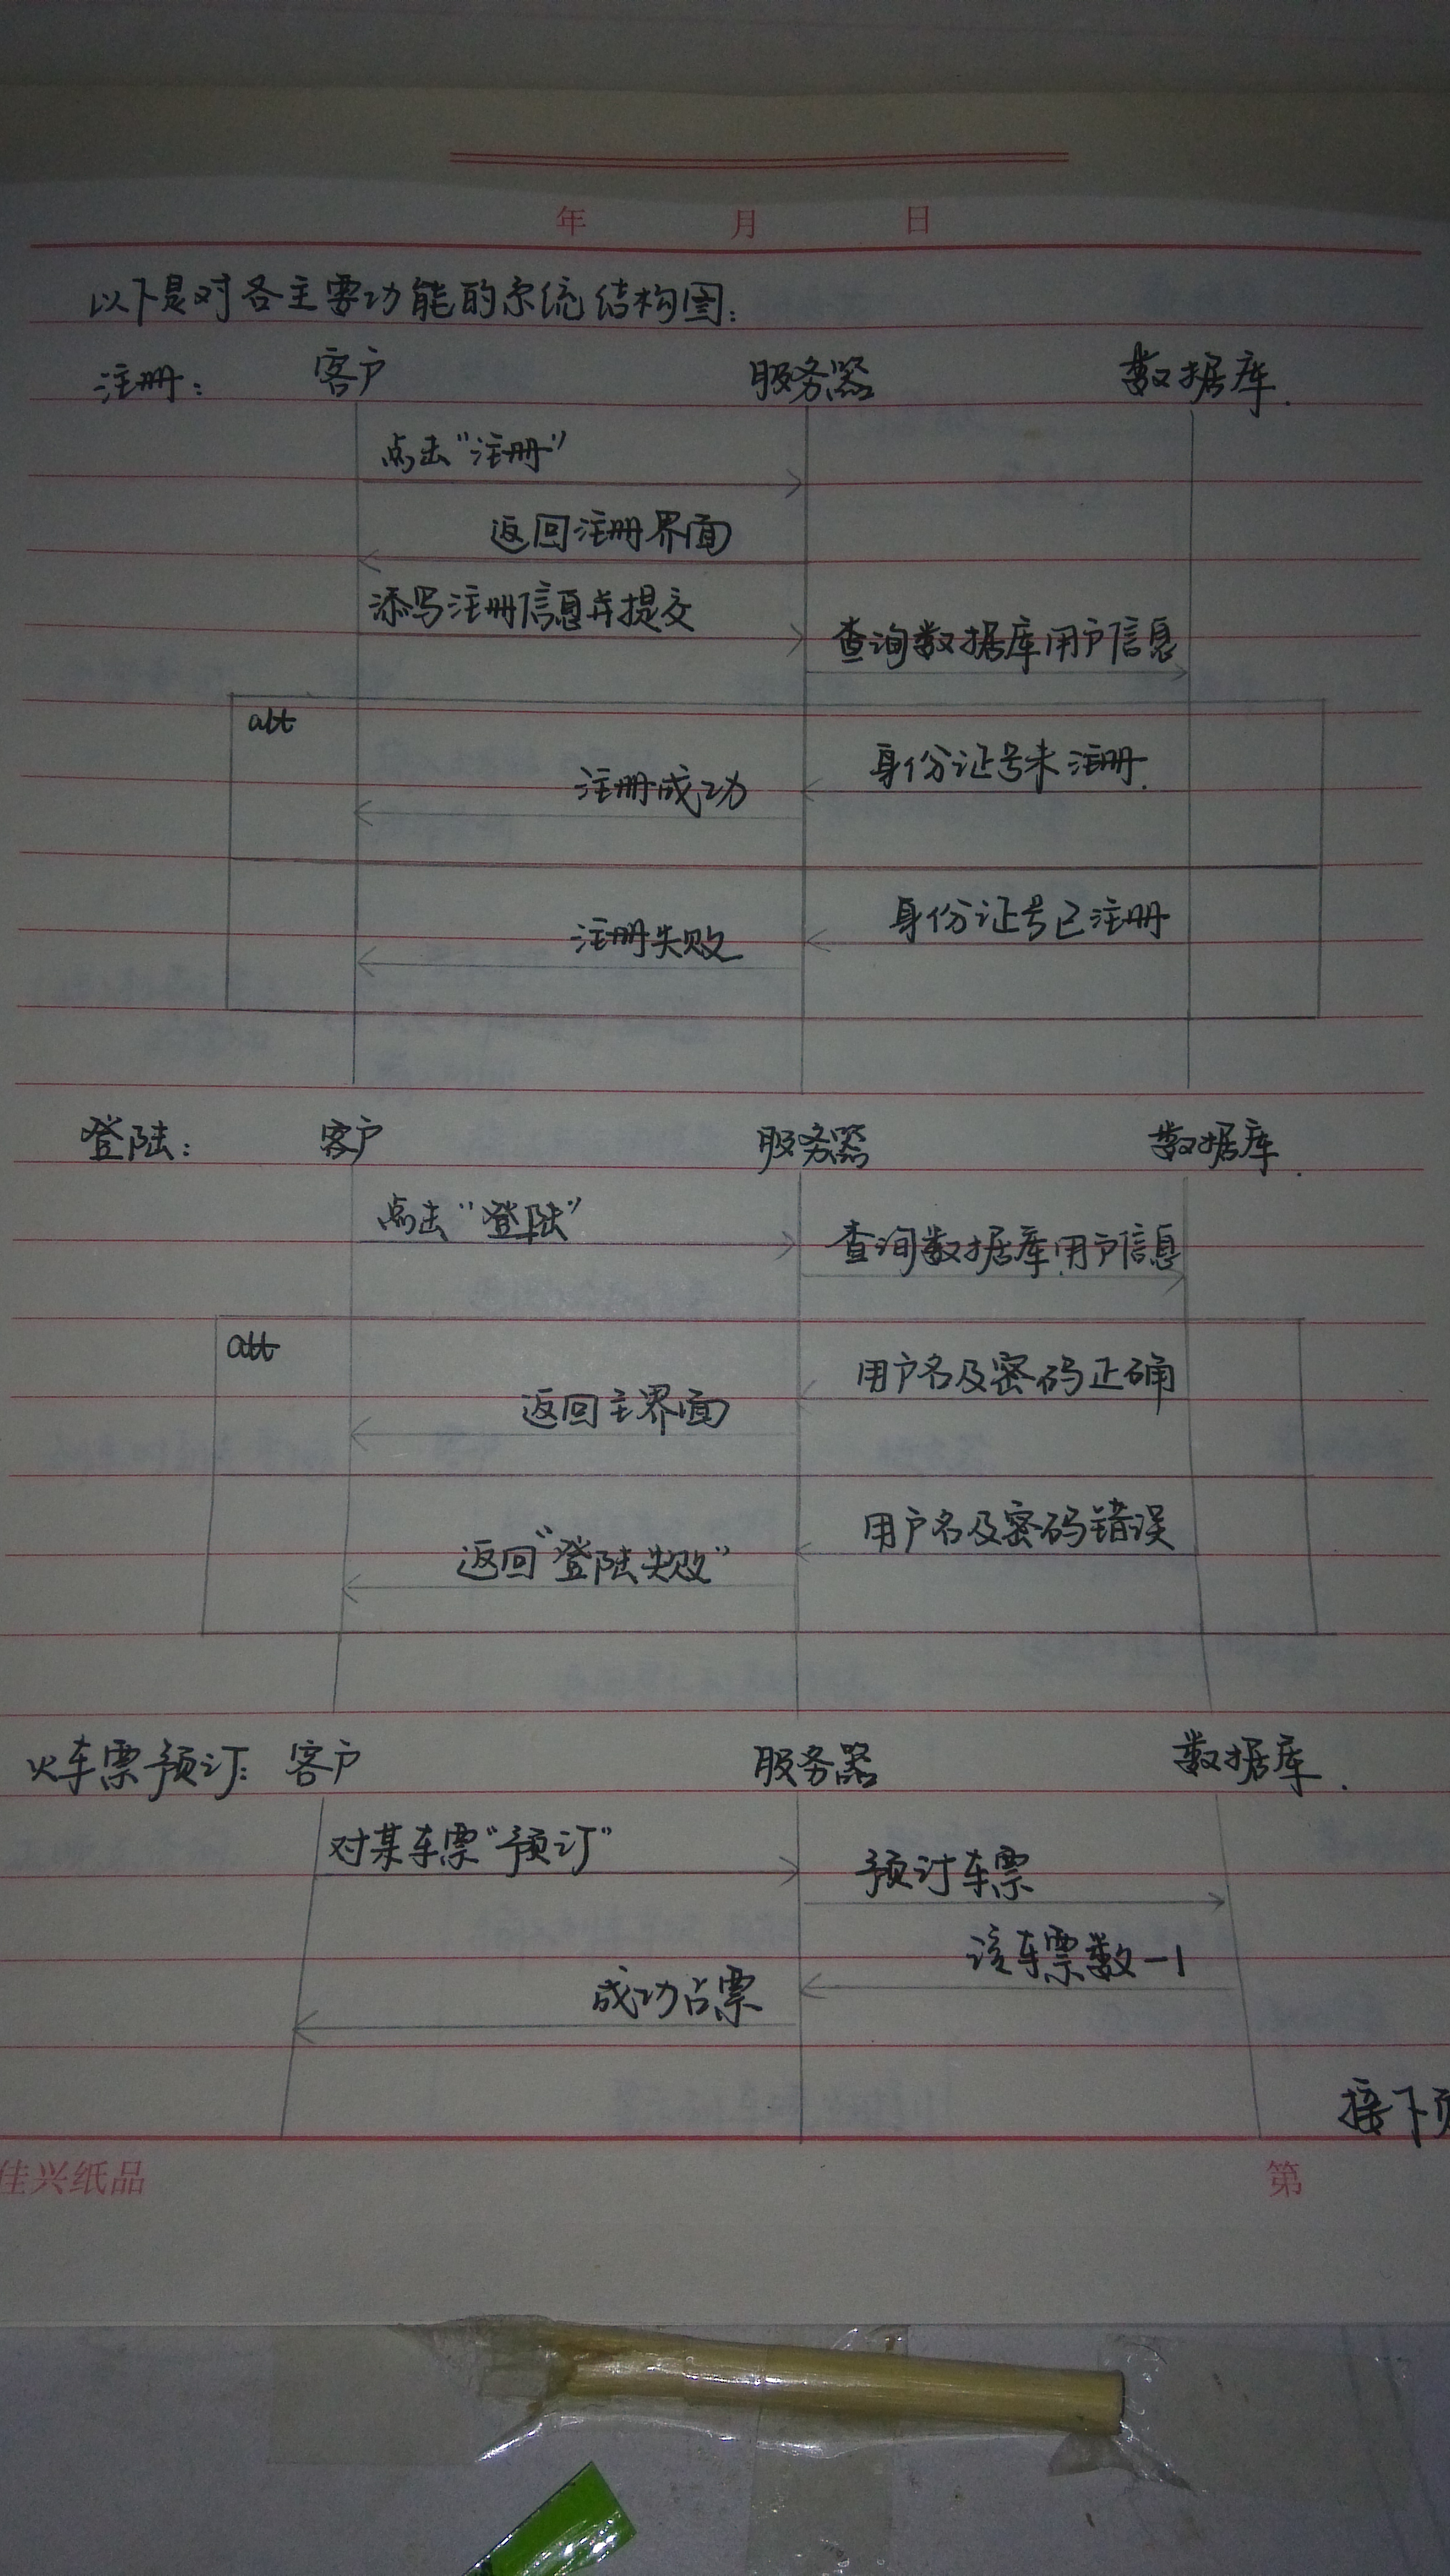 年 月 日
以下是对各主要功能的系统结构图:
注册: 客户 服务器 数据库.
点击"注册"
返回注册界面
添写注册信息并提交
查询数据库用户信息
alt
身份证号未注册.
注册成功
身份证号已注册
注册失败
登陆: 客户 服务器 数据库.
点击"登陆"
查询数据库用户信息
alt
用户名及密码正确
返回主界面
用户名及密码错误
返回"登陆失败"
火车票预订: 客户 服务器 数据库.
对某车票"预订"
预订车票
该车票数-1
成功占票
接下页
佳兴纸品 第